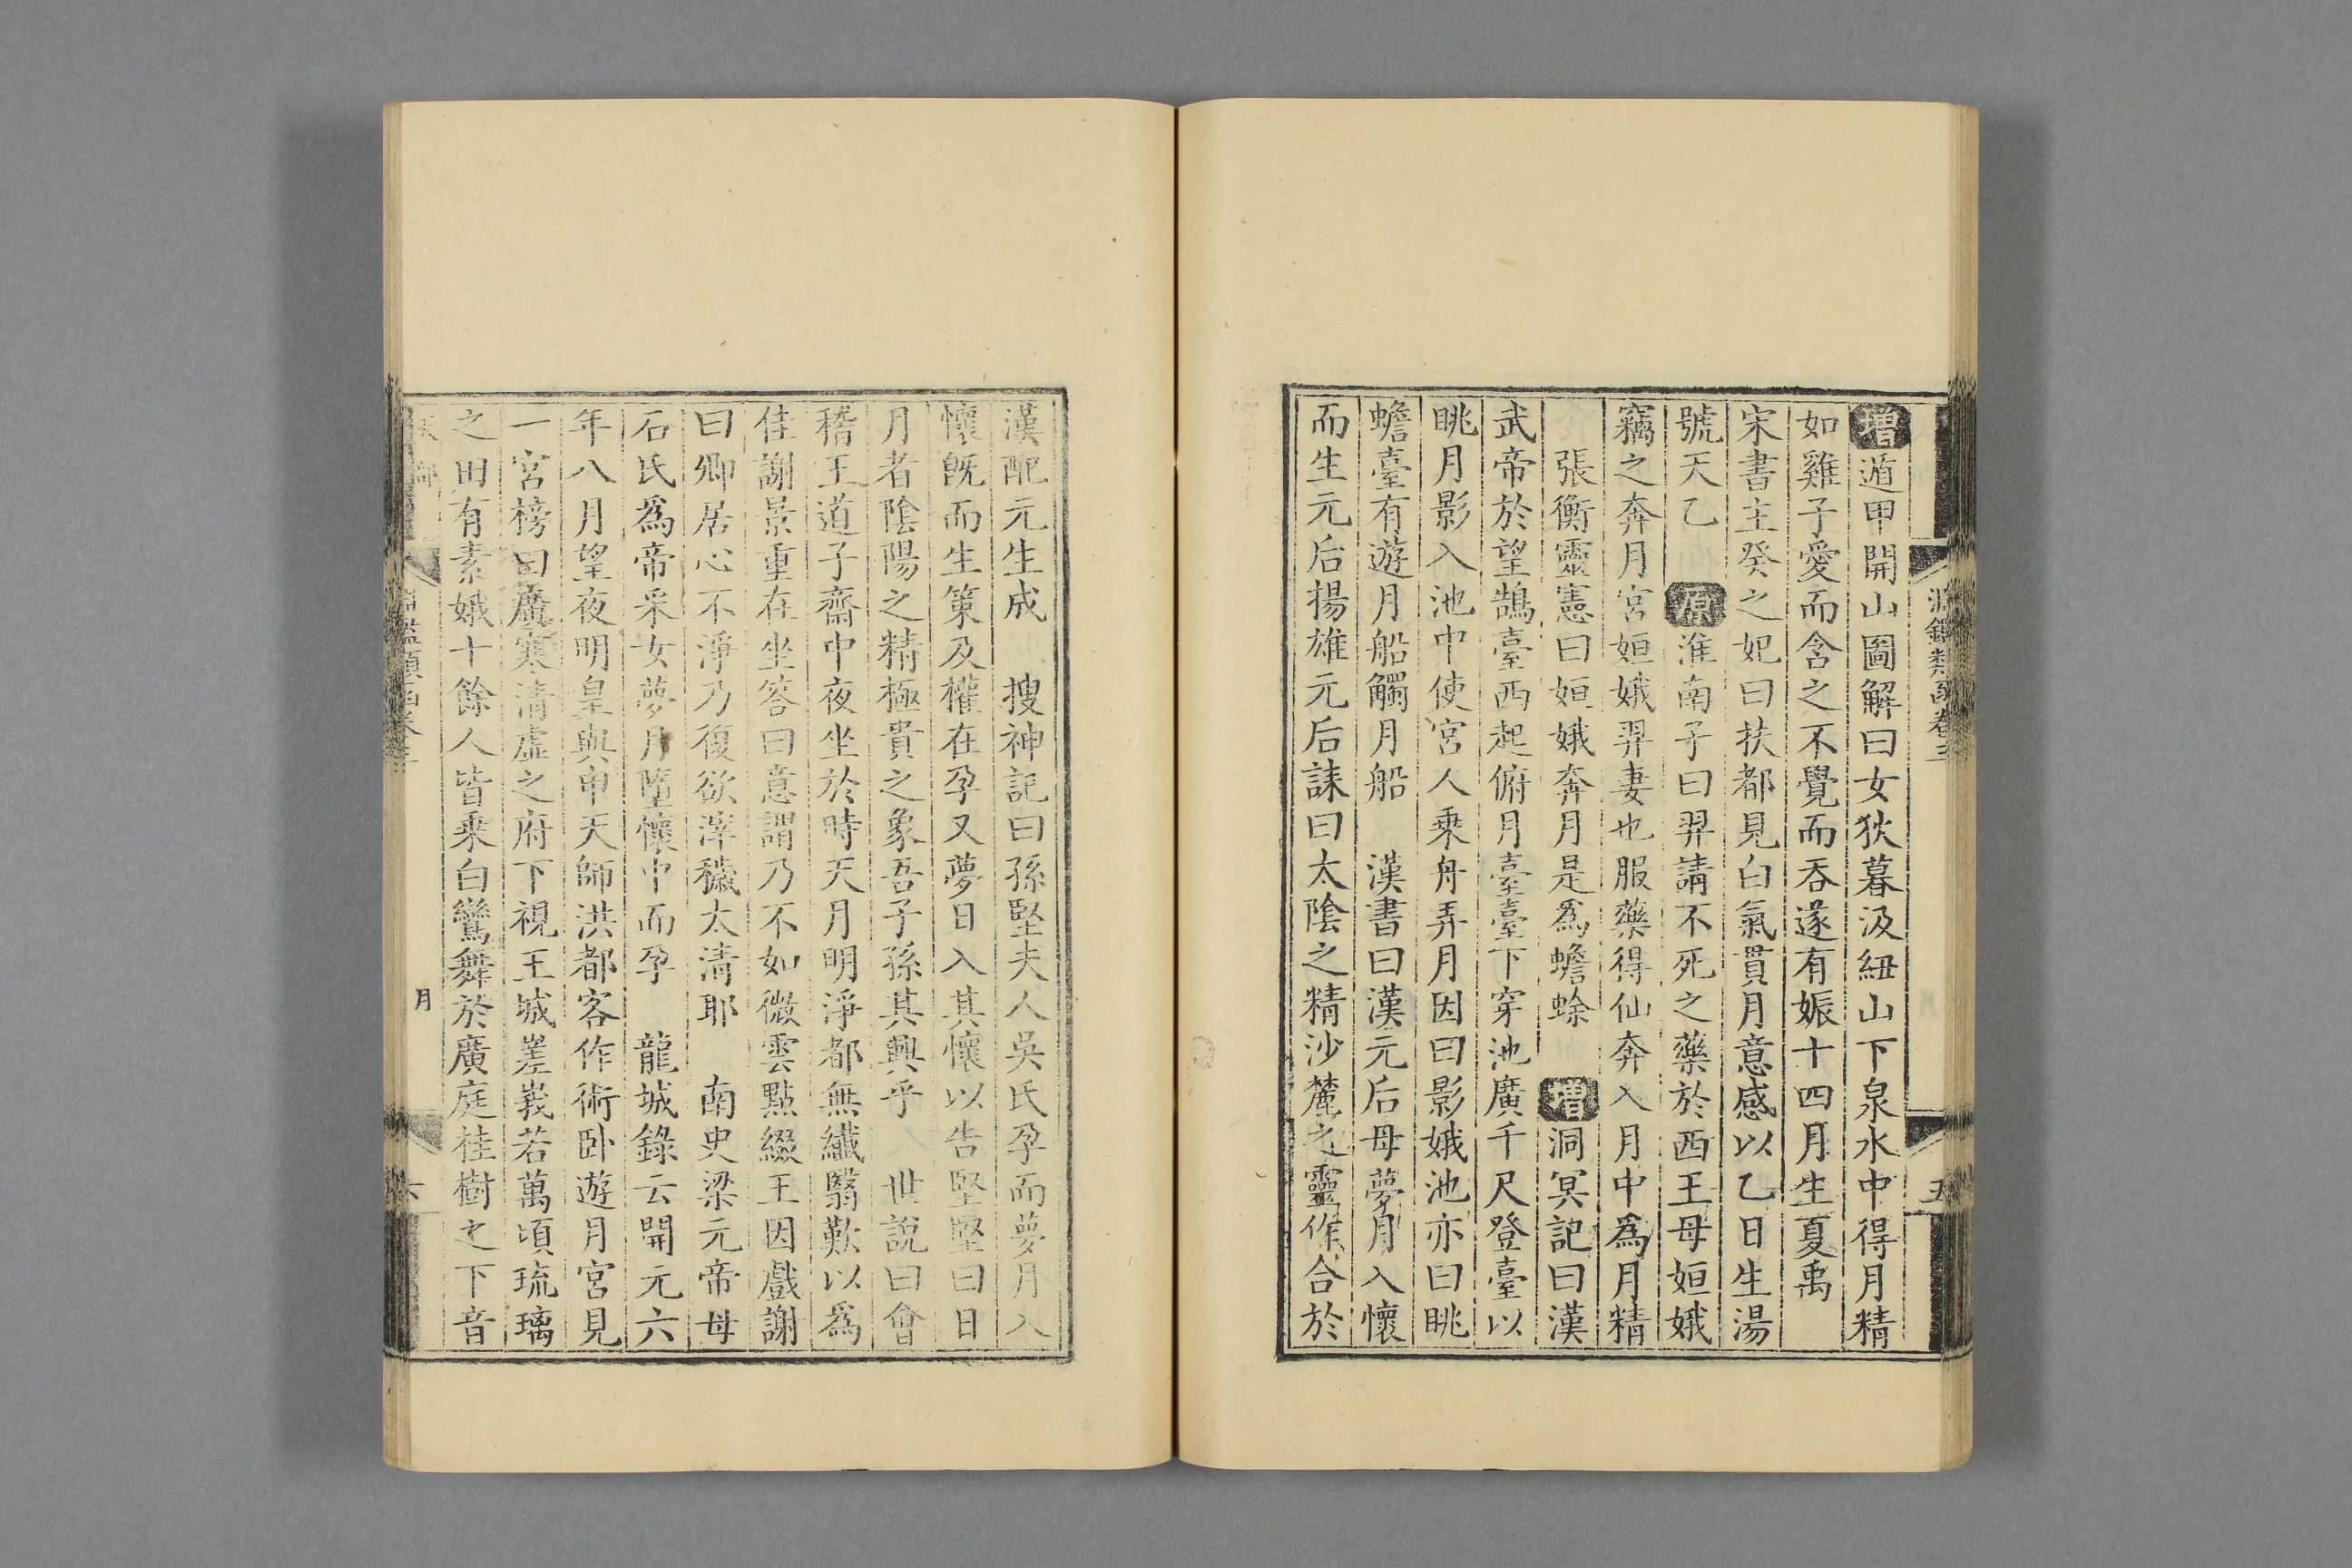 增遁甲開山圖解曰女狄暮汲紐山下泉水中得月精
如雞子愛而含之不覺而吞遂有娠十四月生夏禹
宋書主癸之妃曰扶都見白氣貫月意感以乙日生湯
號天乙　原淮南子曰羿請不死之藥於西王母姮娥
竊之奔月宮姮娥羿妻也服藥得仙奔入月中爲月精
張衡靈憲曰姮娥奔月是爲蟾蜍　增洞冥記曰漢
武帝於望鵠臺西起俯月臺臺下穿池廣千尺登臺以
眺月影入池中使宮人乗舟弄月因曰影娥池亦曰眺
蟾臺有遊月船觸月船　漢書曰漢元后母夢月入懷
而生元后揚雄元后誄曰太陰之精沙麓之靈作合於
漢配元生成　搜神記曰孫堅夫人吳氏孕而夢月入
懷既而生策及權在孕又夢日入其懷以告堅堅曰日
月者陰陽之精極貴之象吾子孫其興乎　世說曰會
稽王道子齋中夜坐於時天月明淨都無纖翳歎以爲
佳謝景重在坐答曰意謂乃不如微雲點綴王因戲謝
曰卿居心不淨乃復欲滓穢太清耶　南史梁元帝母
石氏爲帝采女夢月墮懷中而孕　龍城錄云開元六
年八月望夜明皇與申天師洪都客作術卧遊月宮見
一宮榜曰廣寒清虛之府下視王城嵳峩若萬頃琉璃
之田有素娥十餘人皆乗白鸞舞於廣庭桂樹之下音
淵鑑類函卷三
五
月
六